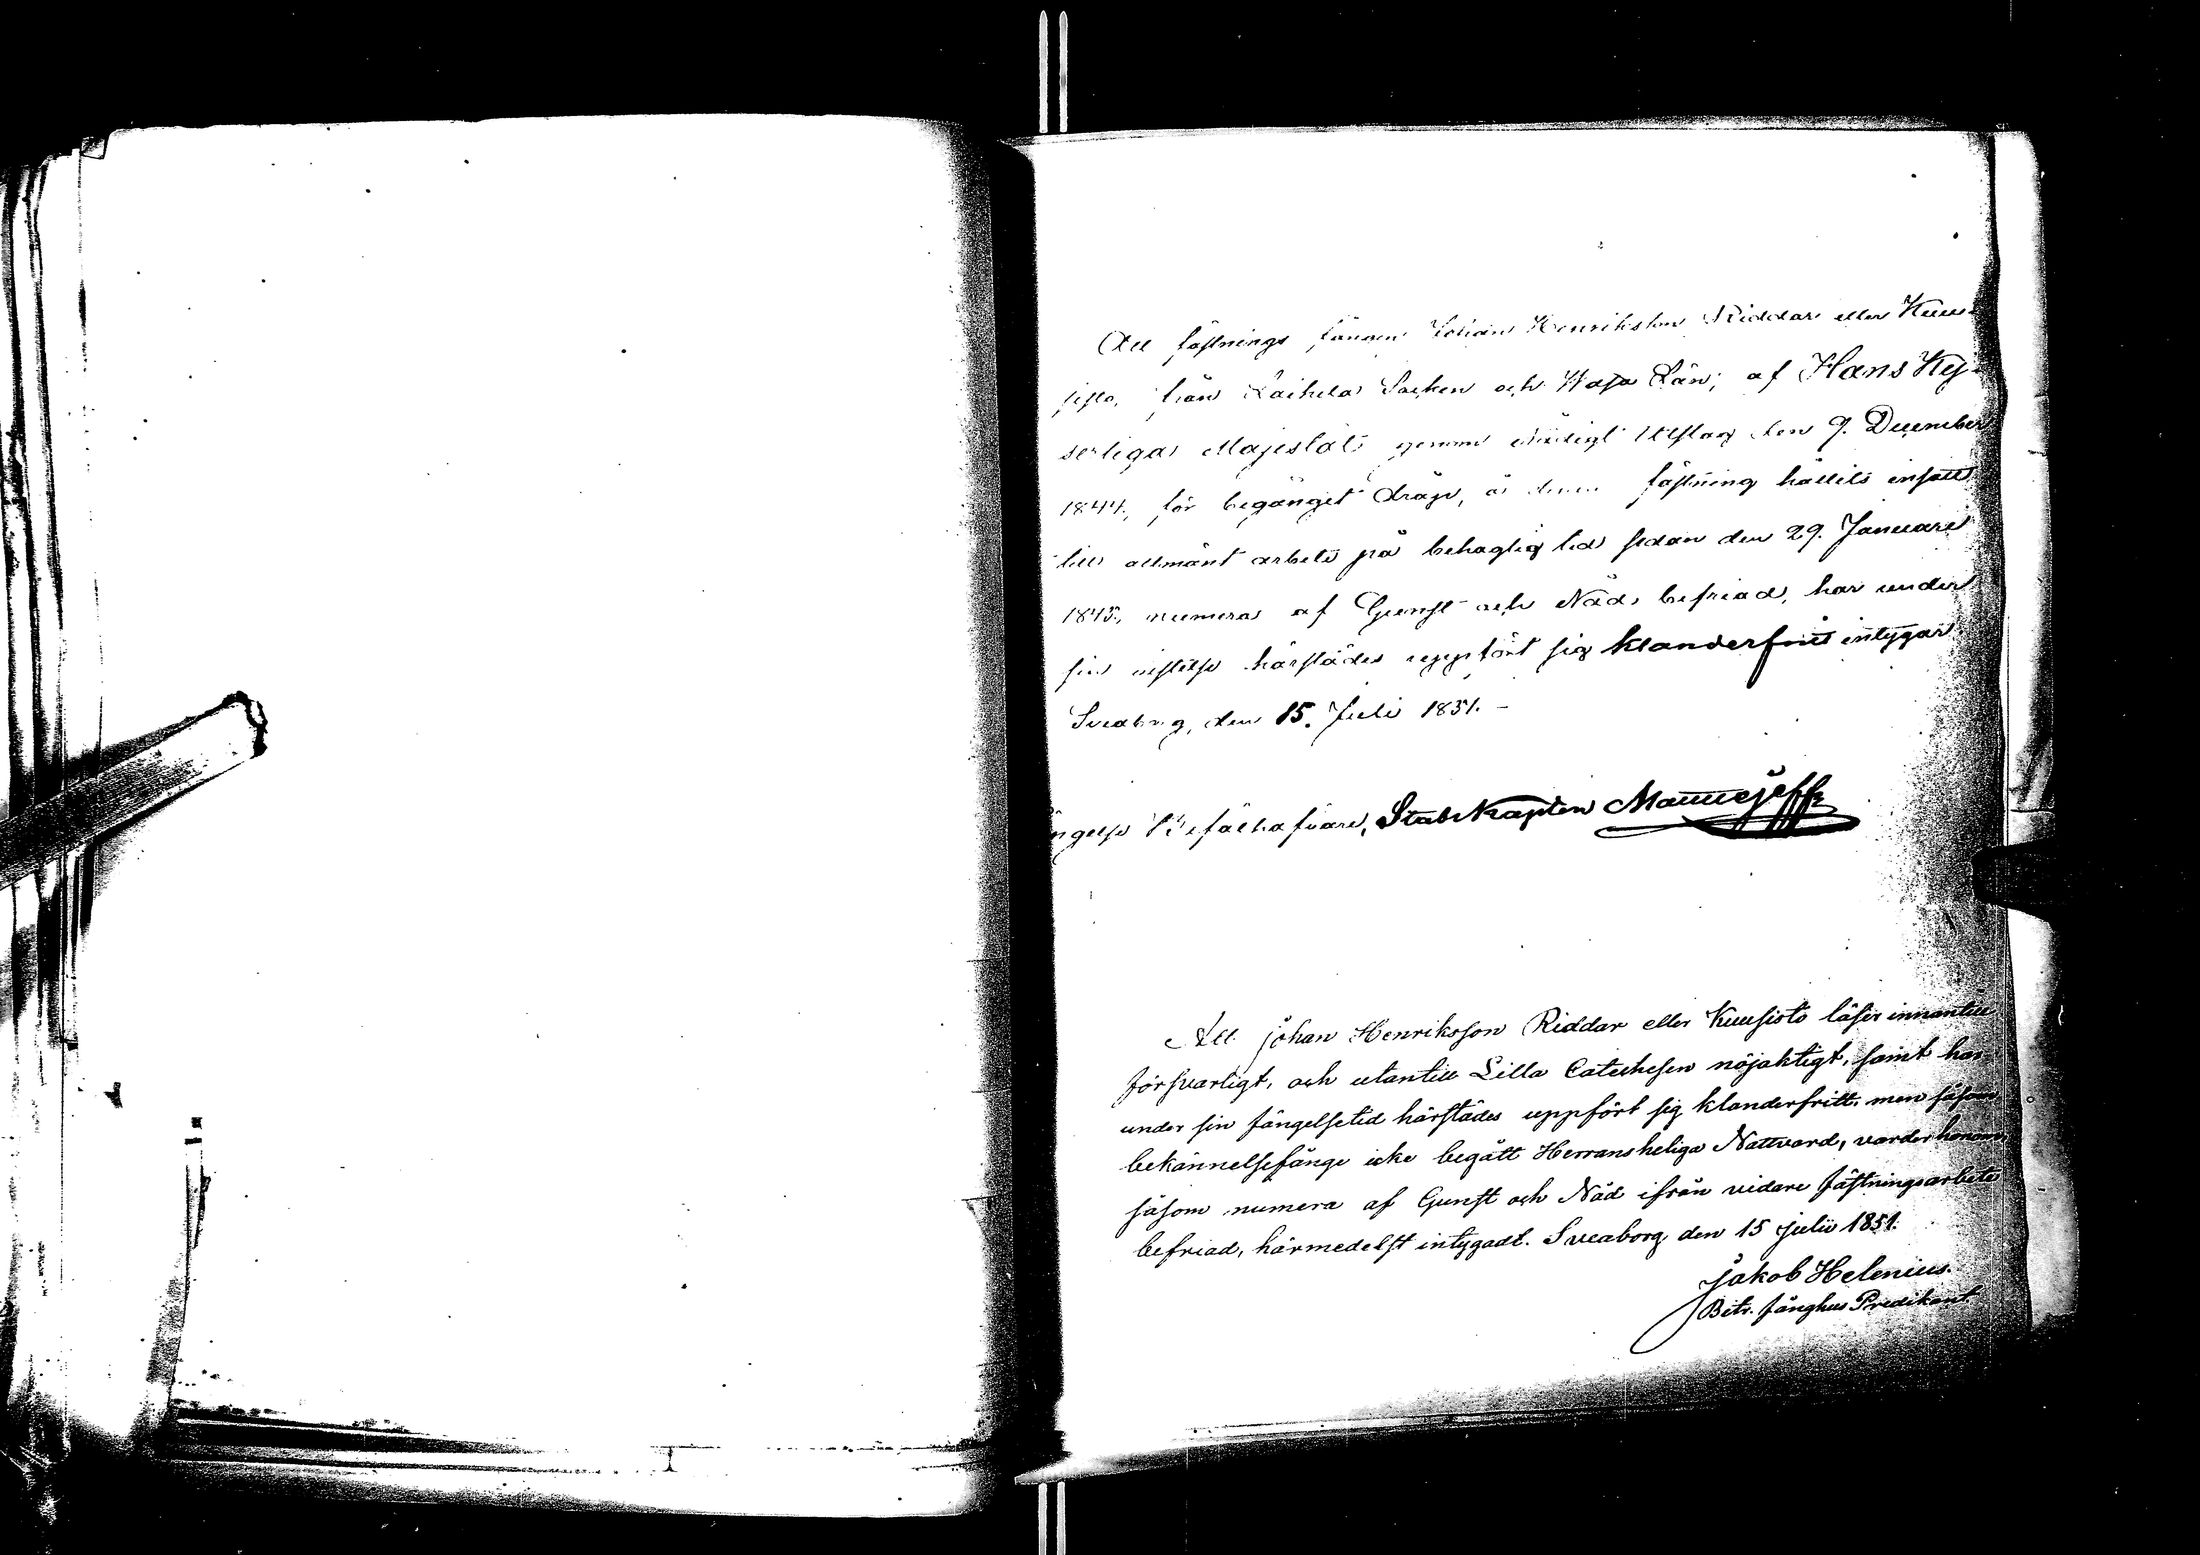 Att fästnings fången Johan Henriksson Riddar eller Kuu-
sisto, från Laihela Socken och Wasa Län, af Hans Kej-
serliga Majestät genom nådigt Utslag den 9. December
1844, för begånget dråp, å denna fästning hållits insatt
till allmänt arbete på behaglig tid sedan den 29. Januari
1845, numera af Gunst och Nåd befriad, har under
sin vistelse härstädes uppfört sig klanderfritt intygar.
Sveaborg, den 15. Juli 1851. -
ngelse Befälhafvare, Stabskapten
Att Johan Henriksson Riddar eller Kuusisto läser innantill
försvarligt, och utantill Lilla Catechesen nöjaktigt, samt har
under sin fängelsetid härstädes uppfört sig klanderfritt. men såsom
bekännelsefånge icke begått Herrans heliga Nattvard, varder honom,
såsom numera af Gunst och Nåd ifrån vidare fästningsarbete
befriad, härmedelst intygadt. Sveaborg den 15 julii 1851.
Jakob Helenius.
Bitr. fänghus Predikant.